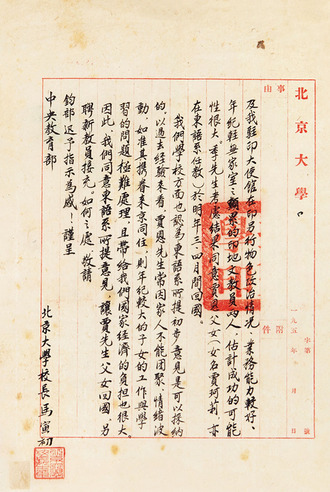 北京大學
事由
附件
字第 號
一九五 年 月 日
及我駐印大使館在印另行物色政治情况、業務能力較好、
年紀輕無家室之顧累的印地文教員两人，估計成功的可能
性很大。季先生考慮結果同意賈恩父女（女名賈珂利，亦
在東語系任教）於明年三四月間回國。
我們學校方面也認為東語系所提初步意見是可以採納
的。以過去經驗來看，賈恩先生常因家人不能團聚，情緒波
動，如准其携眷來京同住，則年紀較大的子女的工作與學
習的問題極難處理，且帶給我們國家經濟的負担也很大。
因此，我們同意東語系所提意見，讓賈先生父女回國，另
聘新教員接充。如何之處，敬請
鈞部迅予指示為感！謹呈
中央教育部
北京大學校長馬寅初